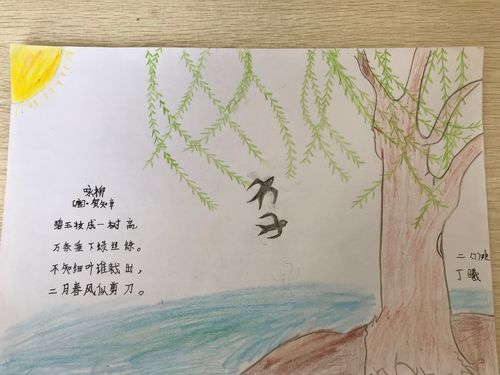 咏柳
[唐]·贺知章
碧玉妆成一树高,
万条垂下绿丝绦。
不知细叶谁裁出,
二月春风似剪刀。
二(1)班
丁曦